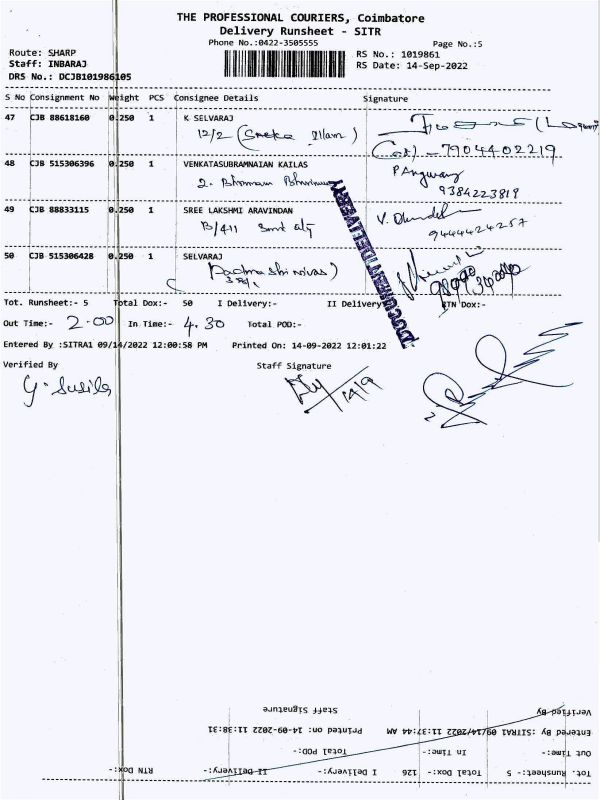 THE PROFESSIONAL COURIERS, Coimbatore
Delivery Runsheet - SITR
Phone No.:0422-3505555
Page No.:5
Route: SHARP
Staff: INBARAJ
DRS No.: DCJB101986105
RS No.: 1019861
RS Date: 14-Sep-2022
S No Consignment No Weight PCS Consignee Details Signature
47 CJB 88618160 0.250 1 K SELVARAJ
12/2 (Sneka Illam)
7904402219
48 CJB 515306396 0.250 1 VENKATASUBRAMNAIAN KAILAS
2.
9384223819
49 CJB 88833115 0.250 1 SREE LAKSHMI ARAVINDAN
B/411
9444424257
50 CJB 515306428 0.250 1 SELVARAJ
Padma shrinivas)
DOCUMENT DELIVERY
Tot. Runsheet:- 5 Total Dox:- 50 I Delivery:- II Delivery RTN Dox:-
Out Time:- 2.00 In Time:- 4.30 Total POD:-
Entered By :SITRA1 09/14/2022 12:00:58 PM Printed On: 14-09-2022 12:01:22
Verified By Staff Signature
14/9
Tot. Runsheet:- 5 Total Dox:- 126 I Delivery:- II Delivery:- RTN Dox:-
Out Time:- In Time:- Total POD:-
Entered By :SITRA1 09/14/2022 11:37:44 AM Printed On: 14-09-2022 11:38:31
Verified By Staff Signature